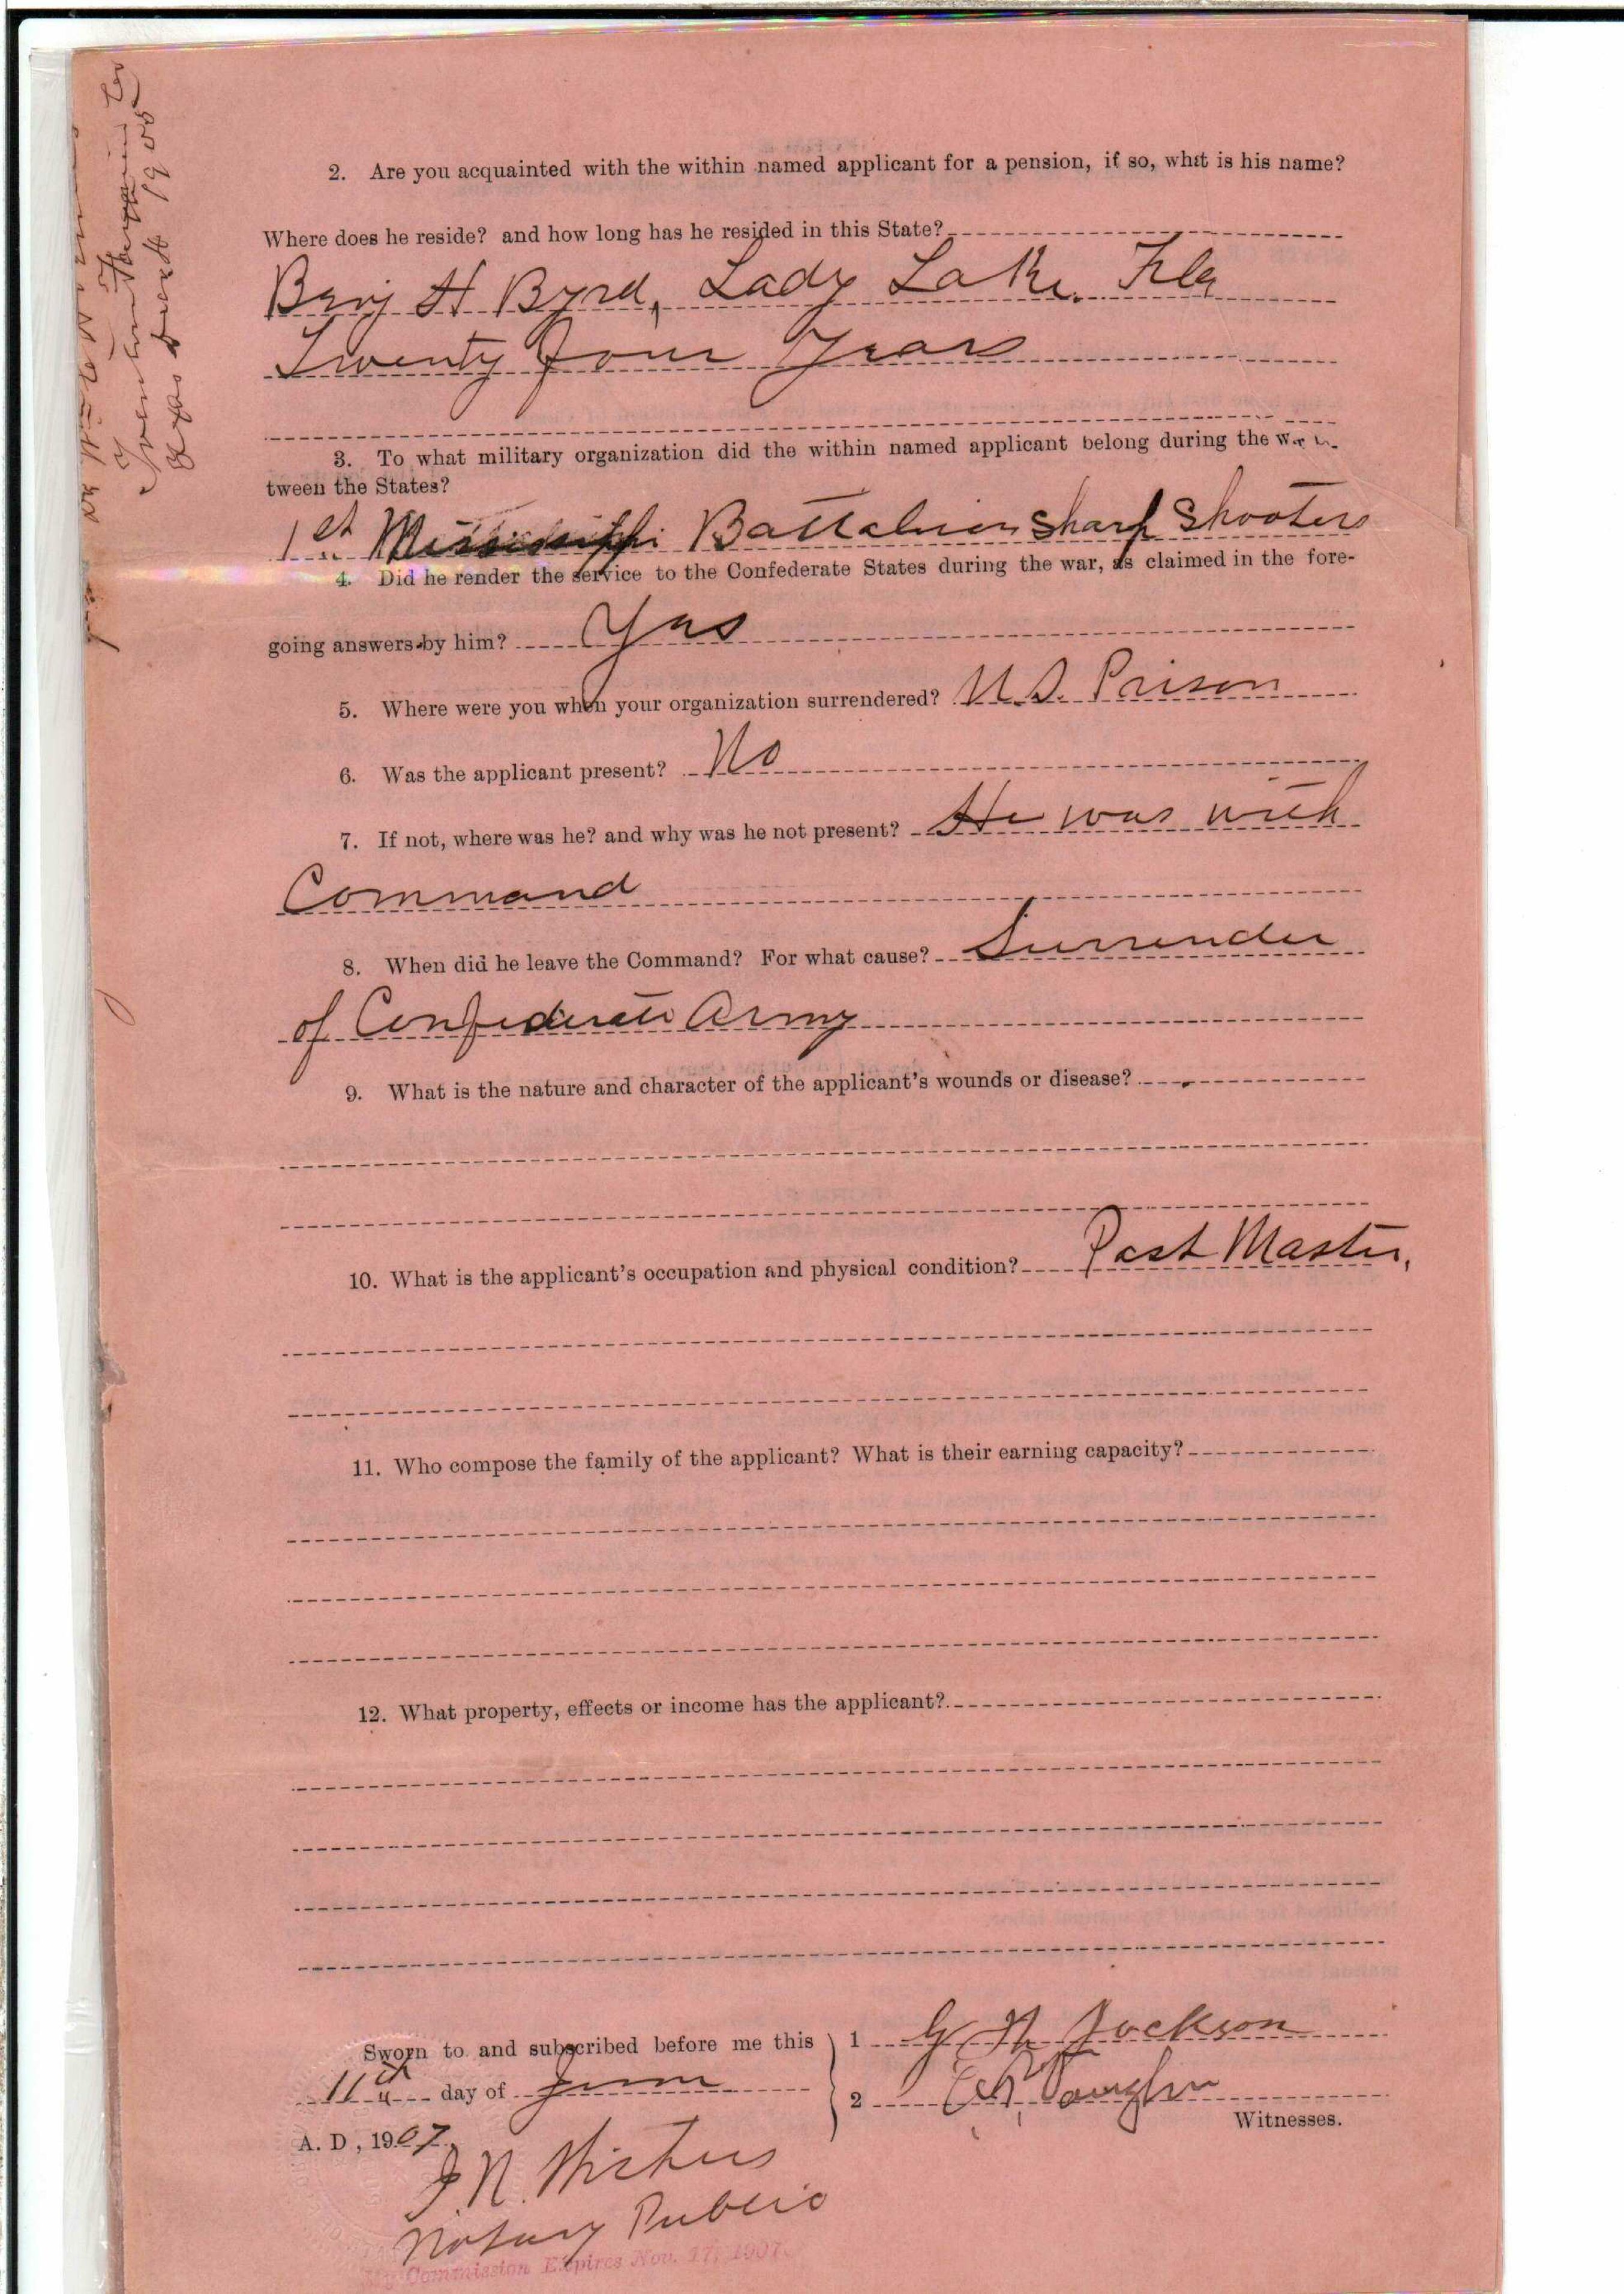 2. Are you acquainted with the within named applicant for a pension, if so, what is his name?
Where does he reside? and how long has he resided in this State?
Benj H Byrd, Lady Lake. Fla
Twenty four years
3. To what military organization did the within named applicant belong during the War
tween the States?
1st Mississippi Battalion Sharp Shooters
4. Did he render the service to the Confederate States during the war, as claimed in the fore-
going answers by him? Yes
5. Where were you when your organization surrendered? U.S. Prison
6. Was the applicant present? No
7. If not, where was he? and why was he not present? He was with
Command
8. When did he leave the Command? For what cause? Surrender
of Confederate Army
9. What is the nature and character of the applicant's wounds or disease?
10. What is the applicant's occupation and physical condition? Post Master,
11. Who compose the family of the applicant? What is their earning capacity?
12. What property, effects or income has the applicant?
Sworn to and subscribed before me this
11th day of June
A. D., 1907
1 G N Jackson
2 Vaughn
Witnesses.
J. N.
Notary Public
My Commission Expires Nov. 17, 1907.